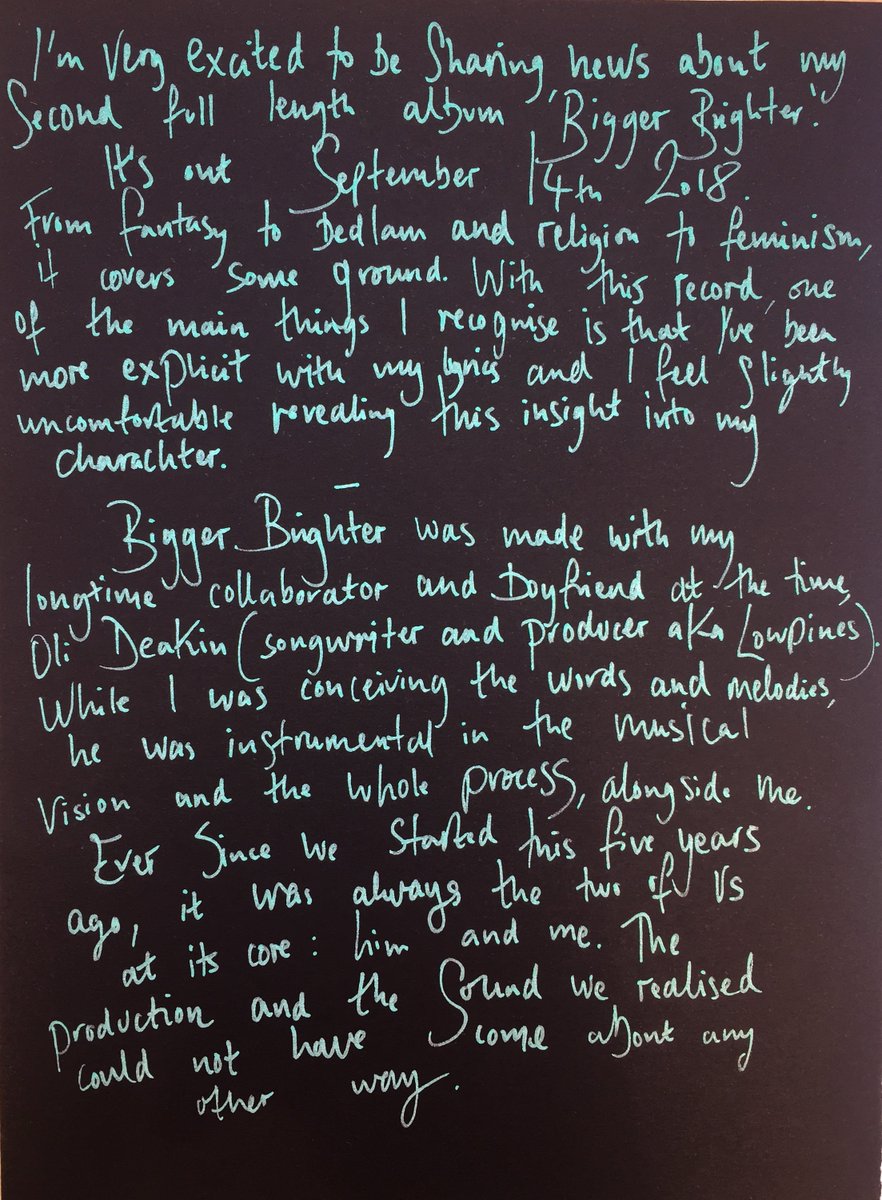 I'm Very excited to be Sharing news about my
Second full length album 'Bigger Brighter'.
It's out September 14th 2018.
From fantasy to Bedlam and religion to feminism,
it covers some ground. With this record, one
of the main things I recognise is that I've been
more explicit with my lyrics and I feel slightly
uncomfortable revealing this insight into my
charachter.
–
Bigger Brighter was made with my
longtime collaborator and Boyfriend at the time,
Oli Deakin (songwriter and producer aka Lowpines).
While I was conceiving the words and melodies,
he was instrumental in the musical
Vision and the whole process, alongside me.
Ever Since we started this five years
ago, it was always the two of Us
at its core: him and me. The
production and the Sound we realised
could not have come about any
other way.